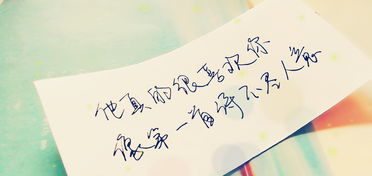 他真的很喜欢你
像第一首诗不尽人意